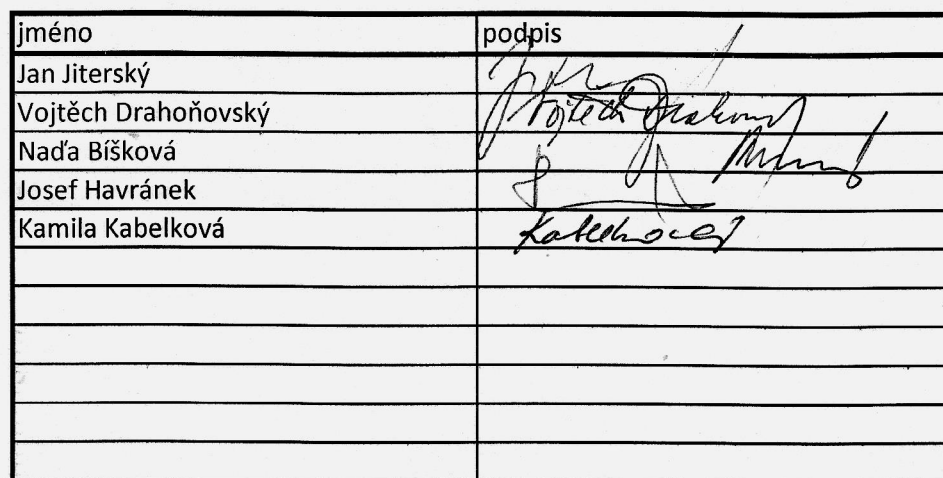 jméno podpis
Jan Jiterský
Vojtěch Drahoňovský Vojtěch
Naďa Bíšková
Josef Havránek
Kamila Kabelková Kabelková